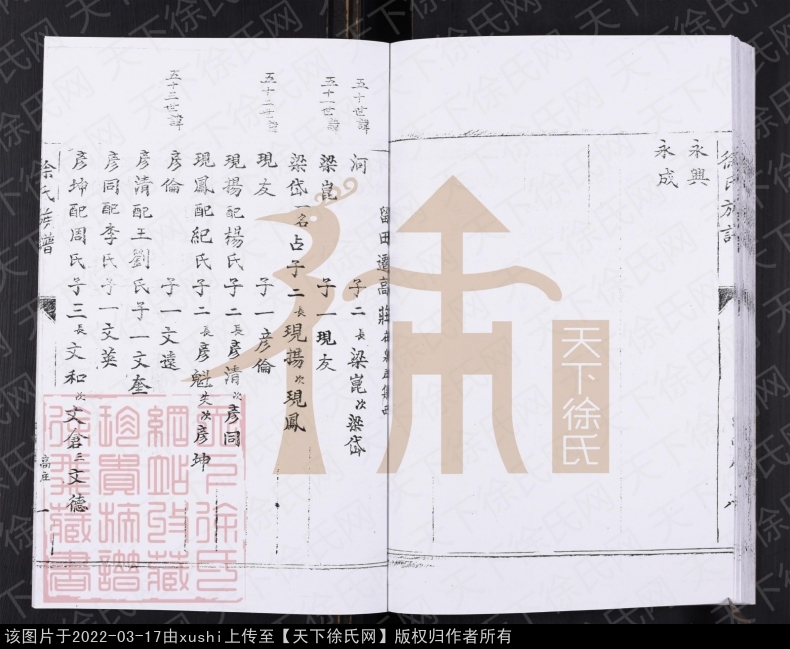 徐氏族譜
永興
永成
五十世諱
五十一世諱
五十二世諱
五十三世諱
留田遷高莊
河 子二長梁崑次梁岱
梁崑 子一現友
梁岱一名占子二長現揚次現鳳
現友 子一彥倫
現揚配楊氏子二長彥清次彥同
現鳳配紀氏子二長彥魁失次彥坤
彥倫 子一文遠
彥清配王劉氏子一文奎
彥同配李氏子一文英
彥坤配周氏子三長文和次文倉三文德
徐氏族譜
高庄 一
天下徐氏
天下徐氏网
该图片于2022-03-17由xushi上传至【天下徐氏网】版权归作者所有